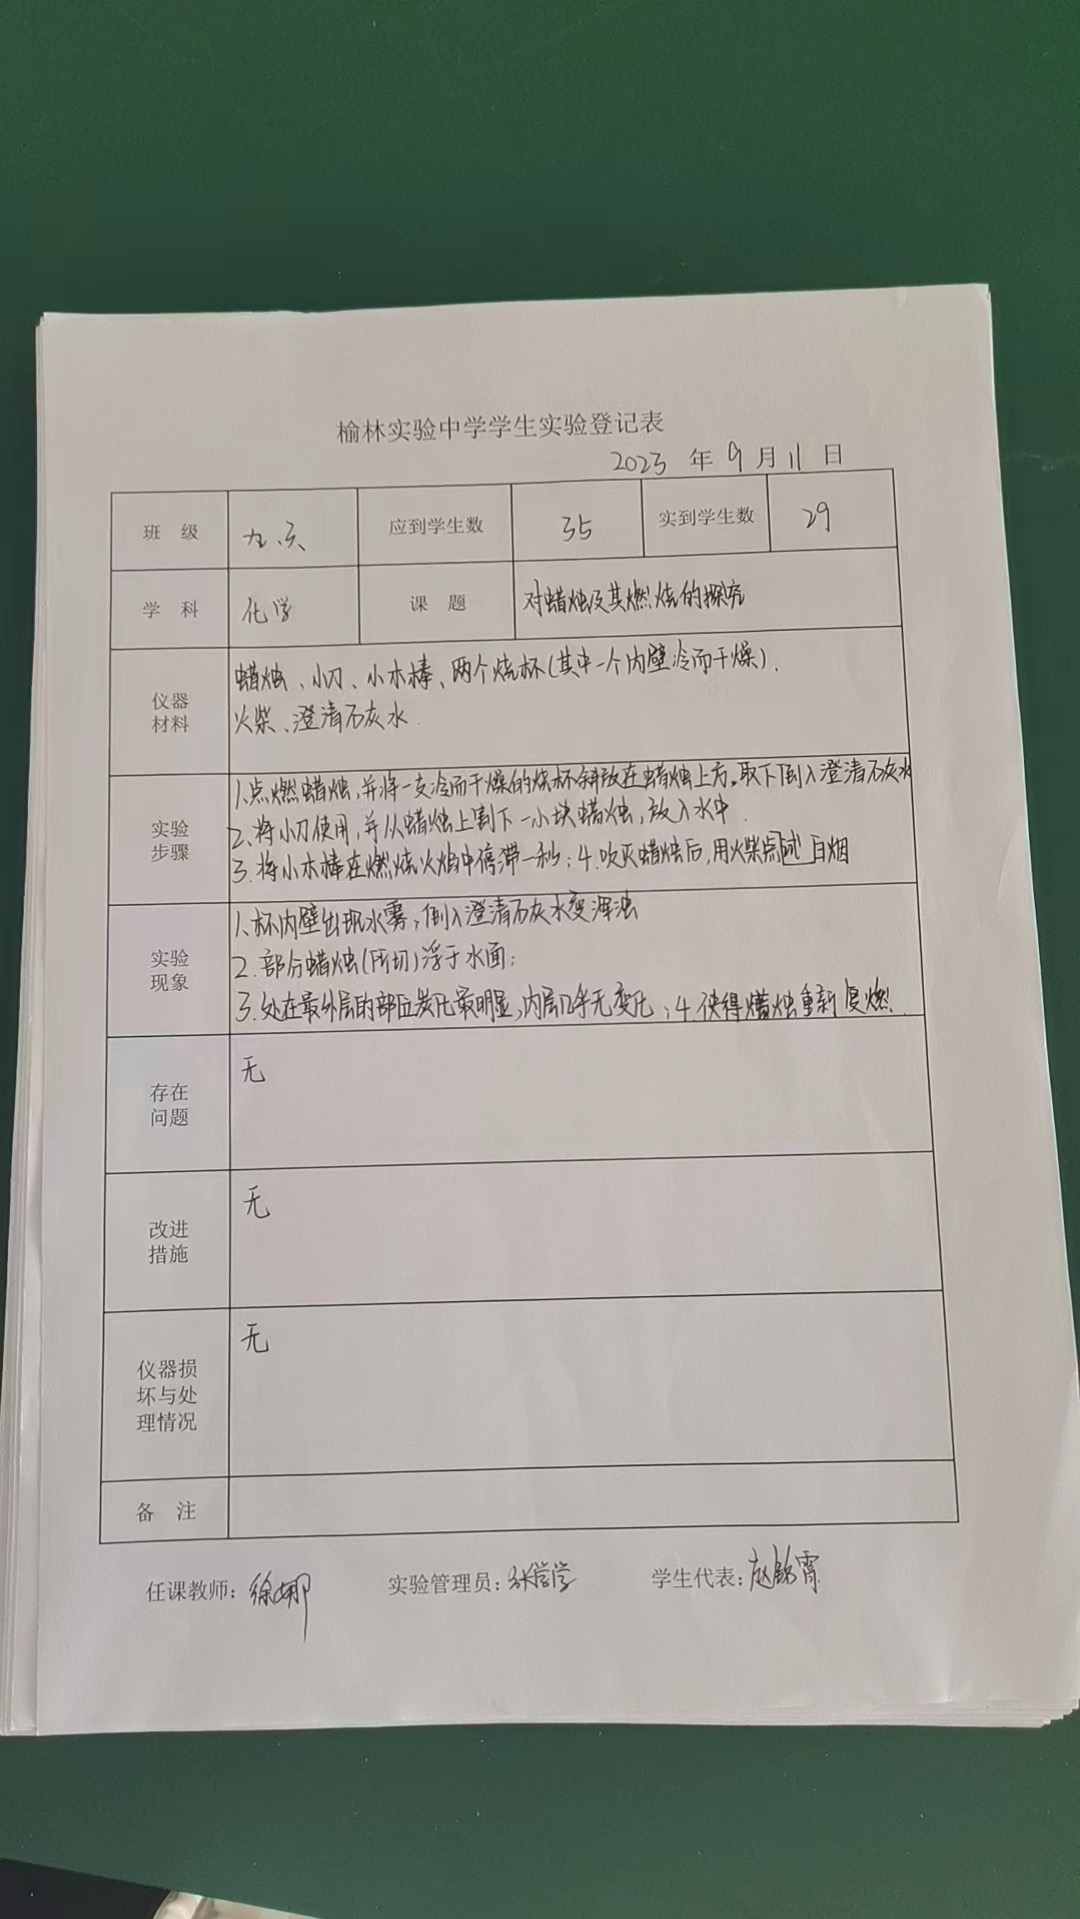 榆林实验中学学生实验登记表
2023 年 9 月 11 日
班 级 九.六 应到学生数 35 实到学生数 29
学 科 化学 课 题 对蜡烛及其燃烧的探究
仪器材料
蜡烛、小刀、小木棒、两个烧杯(其中一个内壁冷而干燥).
火柴、澄清石灰水.
实验步骤
1.点燃蜡烛,并将一支冷而干燥的烧杯斜放在蜡烛上方。取下倒入澄清石灰水
2.将小刀使用,并从蜡烛上割下一小块蜡烛,放入水中.
3.将小木棒在燃烧火焰中停滞一秒;4.吹灭蜡烛后,用火柴点 白烟
实验现象
1.杯内壁出现水雾,倒入澄清石灰水变浑浊
2.部分蜡烛(所切)浮于水面;
3.处在最外层的部位炭化最明显,内层几乎无变化;4.使得蜡烛重新复燃.
存在问题
无
改进措施
无
仪器损坏与处理情况
无
备 注
任课教师:徐娜 实验管理员: 学生代表:赵 霄